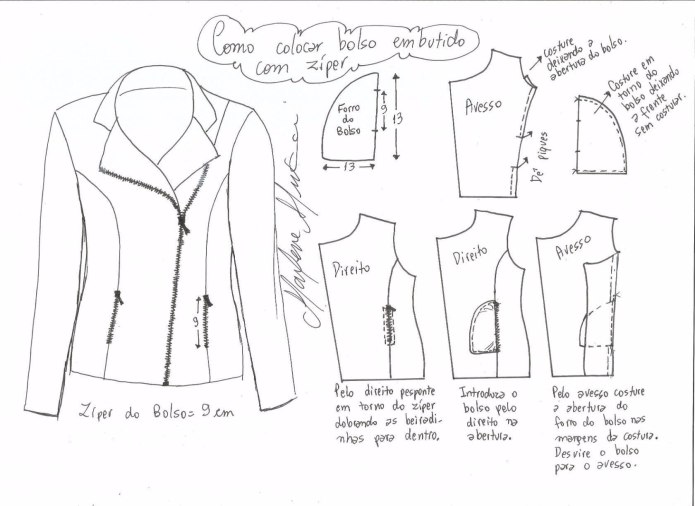 Como colocar bolso embutido
com zíper
Marlene Mukai
Forro
do
Bolso
9
13
13
Avesso
costure
deixando a
abertura do bolso.
Dê piques
Costure em
torno do
bolso deixando
a frente
sem costurar.
9
Zíper do Bolso = 9 cm
Direito
Pelo direito pesponte
em torno do zíper
dobrando as beiradi-
nhas para dentro.
Direito
Introduza o
bolso pelo
direito na
abertura.
Avesso
Pelo avesso costure
a abertura do
forro do bolso nas
margens da costura.
Desvire o bolso
para o avesso.